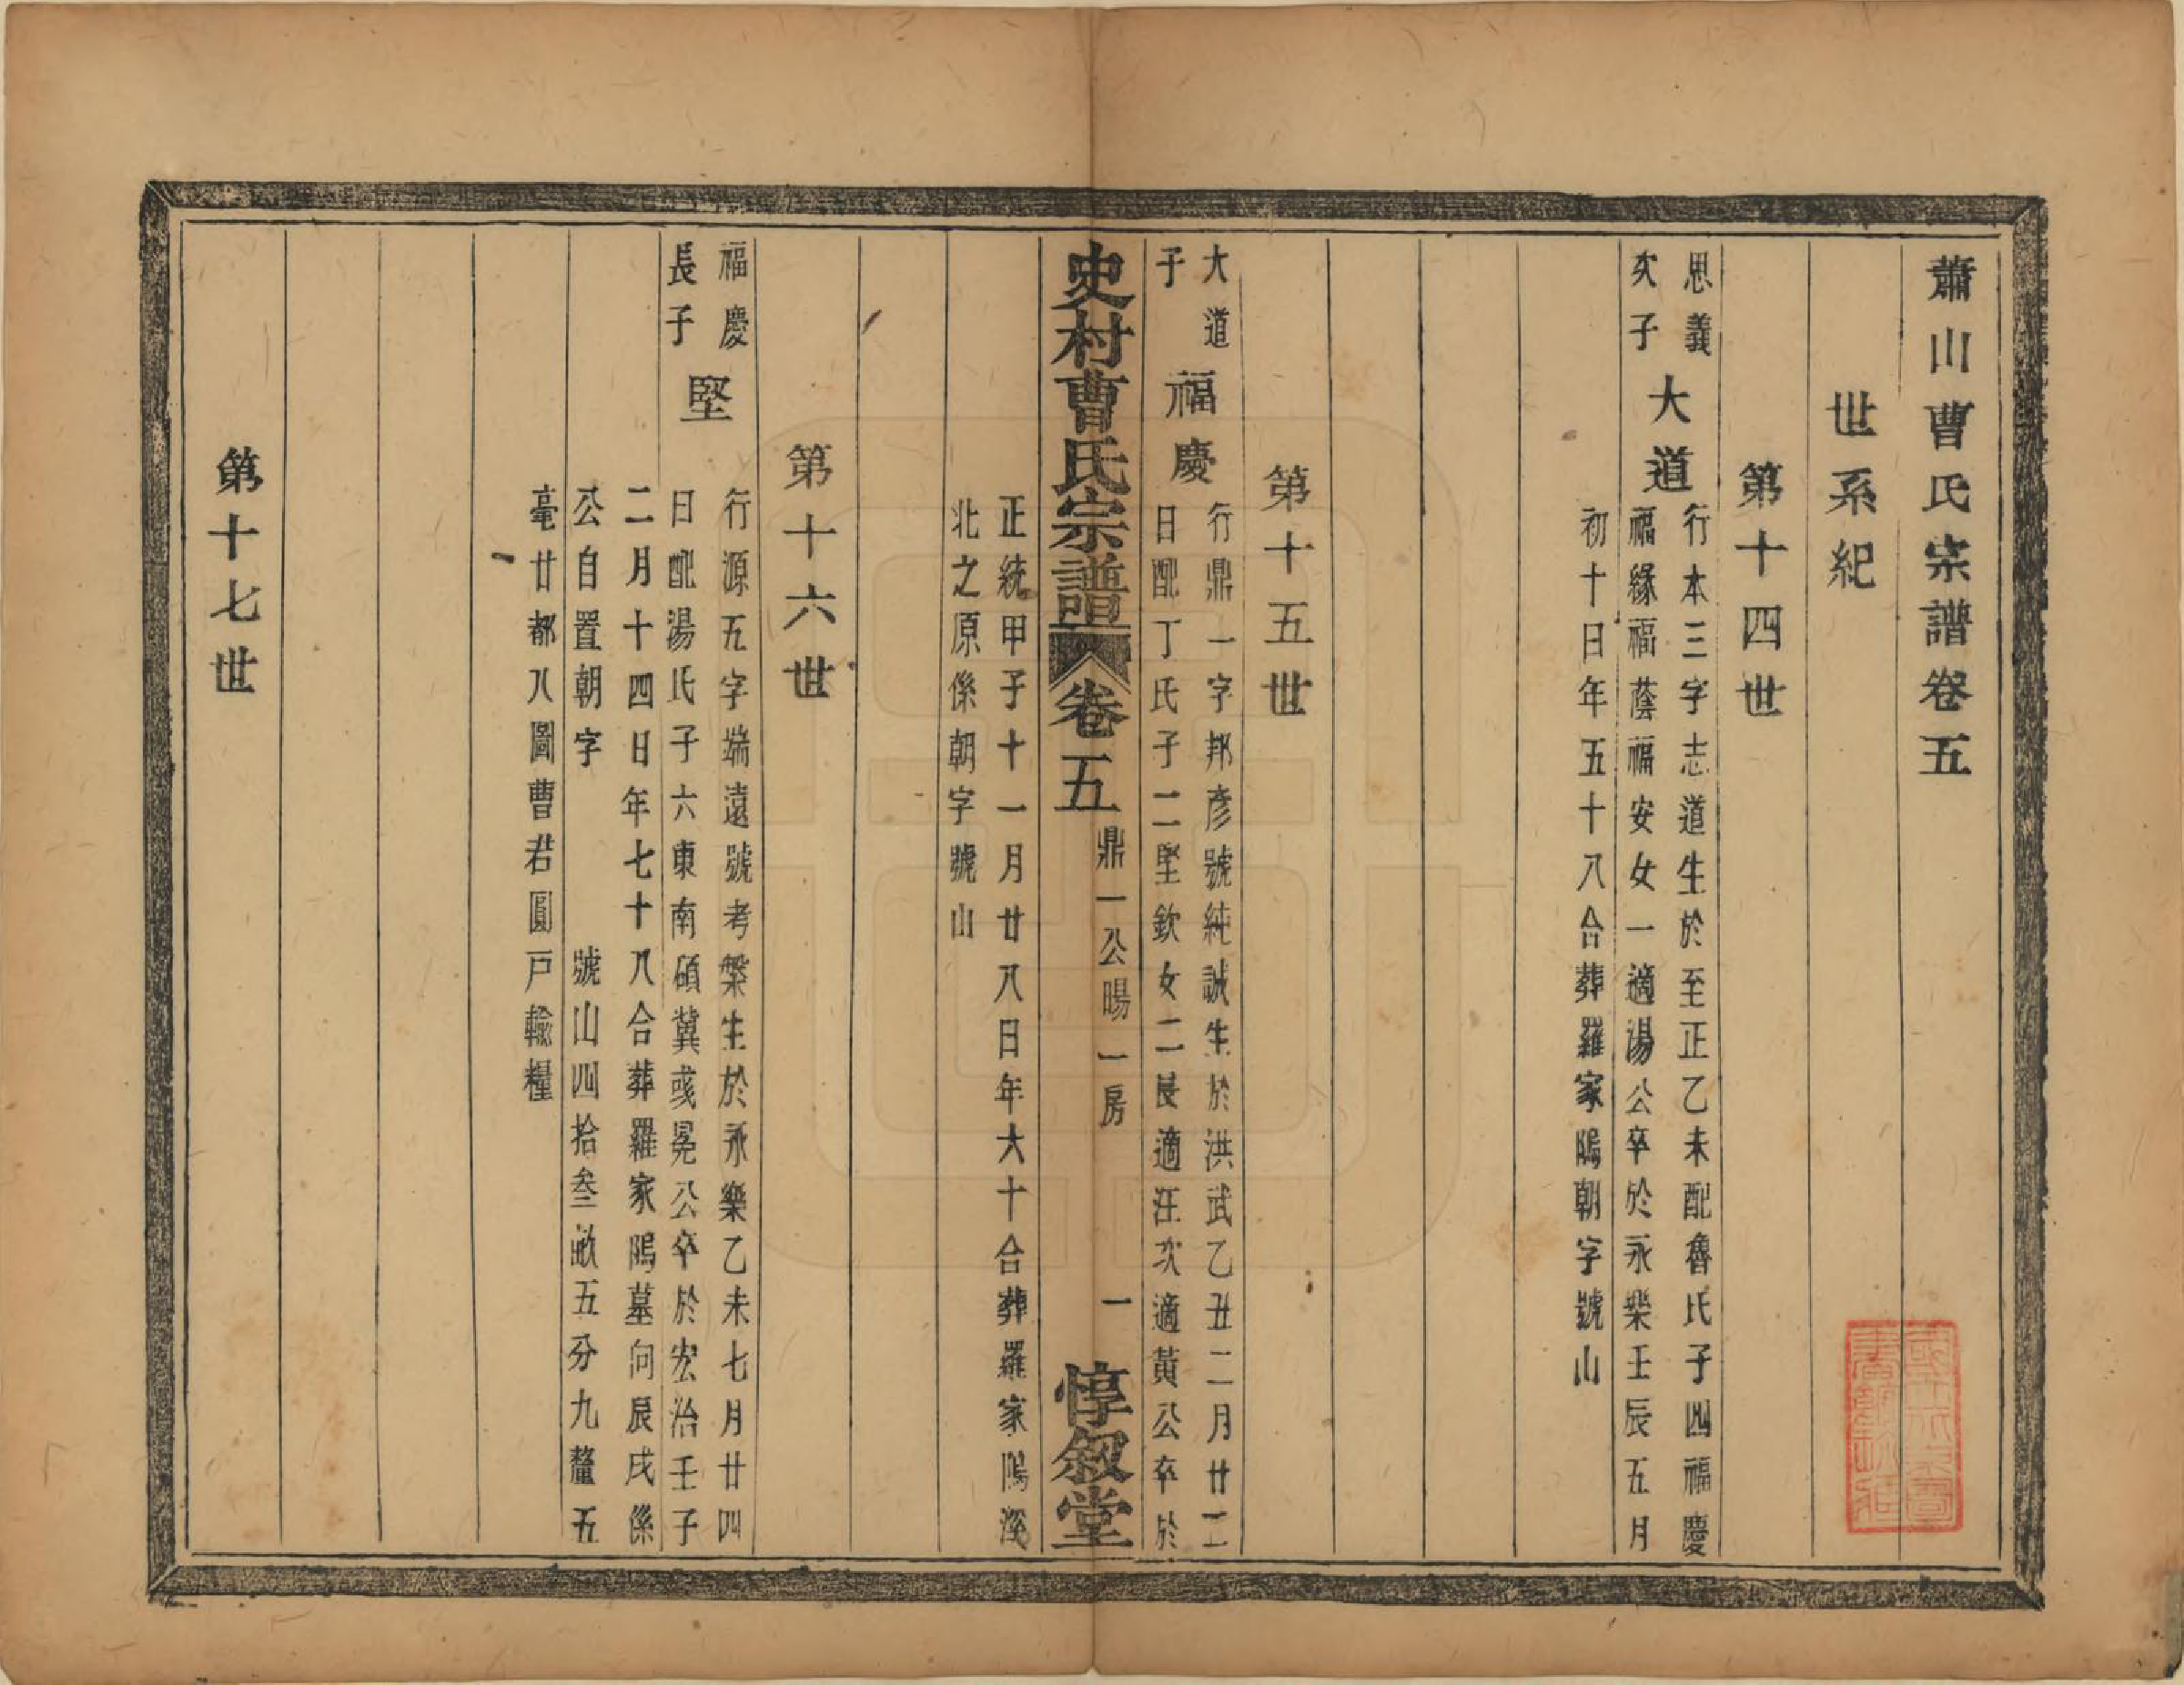 蕭山曹氏宗譜卷五
世系紀
第十四世
思義
次子
大道
行本三字志道生於至正乙未配魯氏子四福慶
福緣福蔭福安女一適湯公卒於永樂壬辰五月
初十日年五十八合葬羅家隖朝字號山
第十五世
大道
子
福慶
行鼎一字邦彥號純誠生於洪武乙丑二月廿二
日配丁氏子二堅欽女二長適汪次適黃公卒於
史村曹氏宗譜
卷五
鼎一公暘一房
一
惇敘堂
正統甲子十一月廿八日年六十合葬羅家隖溪
北之原係朝字號山
第十六世
福慶
長子
堅
行源五字端遠號考槃生於永樂乙未七月廿四
日配湯氏子六東南碩冀彧冕公卒於宏治壬子
二月十四日年七十八合葬羅家隖墓向辰戌係
公自置朝字 號山四拾叁畝五分九釐五
毫廿都八圖曹君圓戸輸糧
第十七世